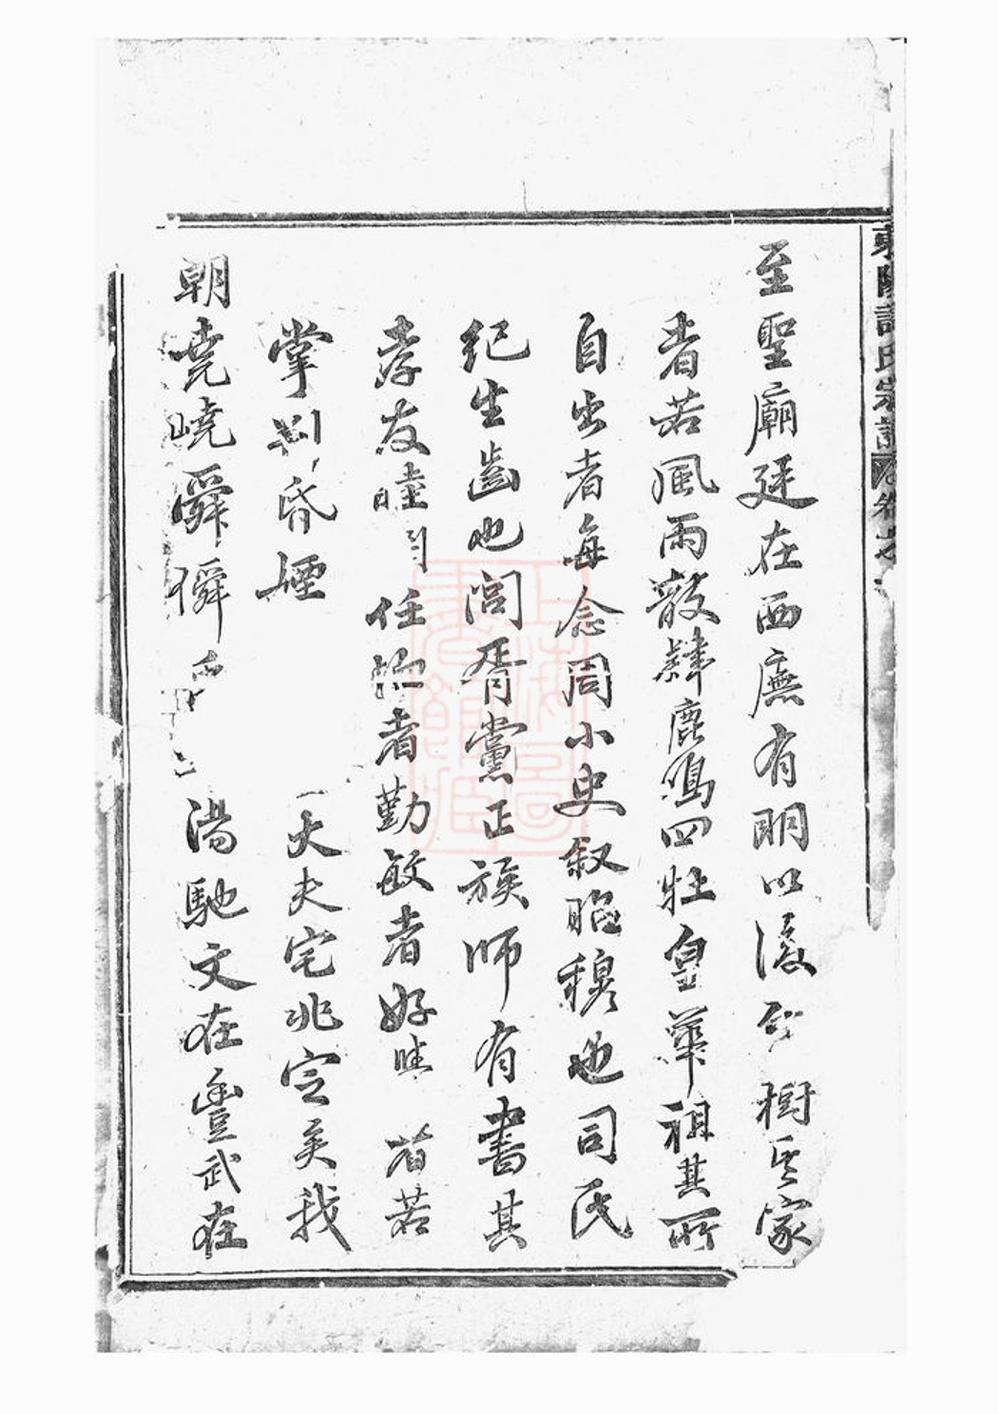 東陽許氏宗譜 卷之
至聖廟廷在西廡有明以後 樹其家
者若風雨散肆鹿鳴四牡皇華祖其所
自出者每念周小史叙昭穆也司氏
紀生齒也閭胥黨正族師有書其
孝友睦 任恤者勤敏者好 者若
掌判昏煙 大夫宅兆定矣我
朝堯嶢舜僢 湯馳文在豐武在